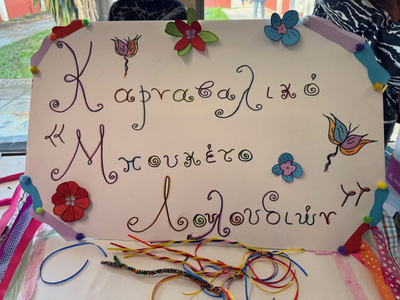 Καρναβαλικό
"Μπουκέτο
Λουλουδιών"